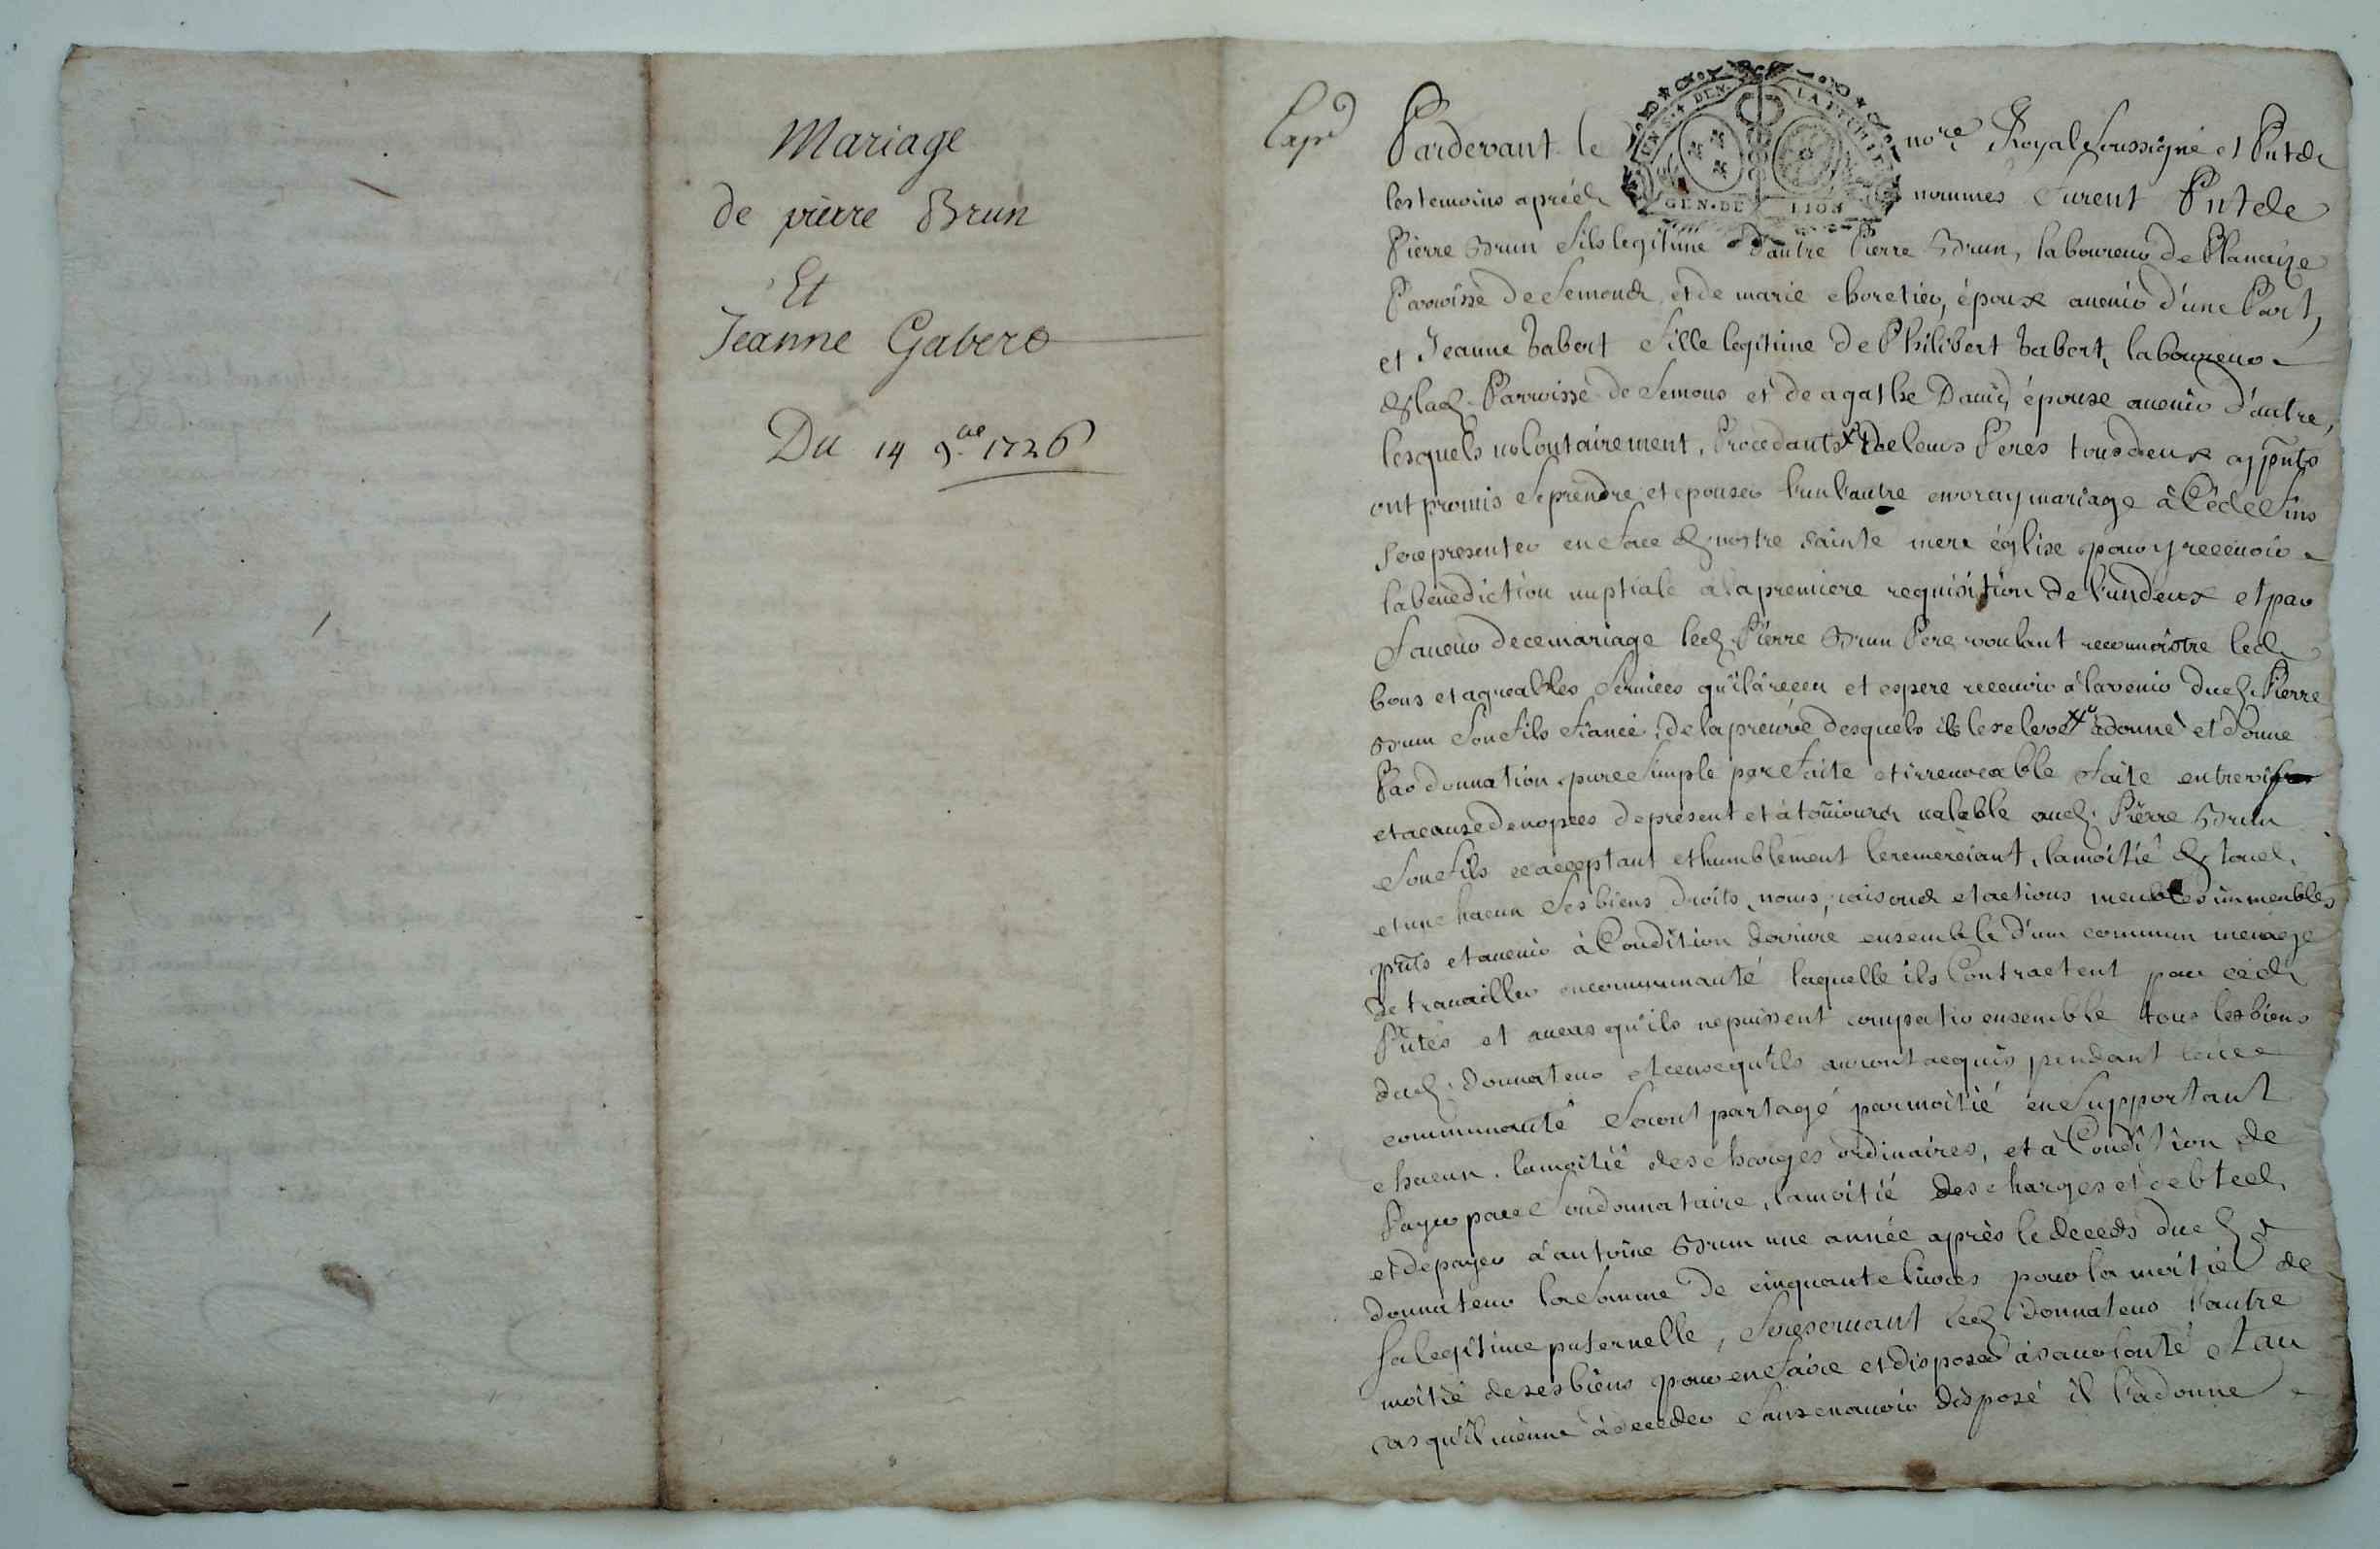 Mariage
de pierre Brun
Et
Jeanne Gabert
Du 14 9.bre 1726
Exp.d
GEN. DE LION
Pardevant le no.re Royal soussigné et Pnt de
les temoins apréd nommés furent Pnt de
Pierre Brun fils legitime d'autre Pierre Brun, laboureur de Plancize
Parroisse de Semond, et de marie choretier, époux avenir d'une Part,
et Jeanne Gabert fille legitime de Philibert Gabert, laboureur
de lad. Parroisse de Semons et de agathe David, épouse avenir d'autre,
lesquels volontairement, Procedants de leurs Peres tous deux aj pnts
ont promis se prendre et epouser l'un l'autre en vray mariage à Céde fins
se representer en face de nostre sainte mere église pour y recevoir
la benediction nuptiale a la premiere requisition de l'un deux et par
faveur de ce mariage led. Pierre Brun Pere voulant reconnoistre led
bons et agreables services qu'il à receu et espere recevoir à l'avenir dud. Pierre
Brun son fils fiancé, de la preuve desquels il le releve à donné et donne
Par donnation pure simple parfaite et irrevocable faite entre vifs
et a cause de nopces de present et à toujours valable aud. Pierre Brun
son fils ce acceptant et humblement le remerciant, la moitié de toud.
et un chacun ses biens droits, noms, raisond et actions meubles immeubles
pnts et avenir à Condition de vivre ensemble d'un commun menage
de travailler en communauté laquelle ils Contractent par céd
Pntes et aucas qu'ils ne puissent compatir ensemble tous les biens
dud. donnateur et ceux qu'ils auront acquis pendant leur
communauté seront partagé par moitié en supportant
chacun. la moitié des charges ordinaires, et à Condition de
Payer par son donnataire, la moitié des charges et debted.
et de payer à antoine Brun une année après le deceds dud.
donnateur la somme de cinquante livres pour la moitié de
sa legitime paternelle, se reservant led. donnateur l'autre
moitié de ses biens pour en faire et disposer à sa volonté et au
cas qu'il vienne à deceder sans en avoir disposé il l'a donne